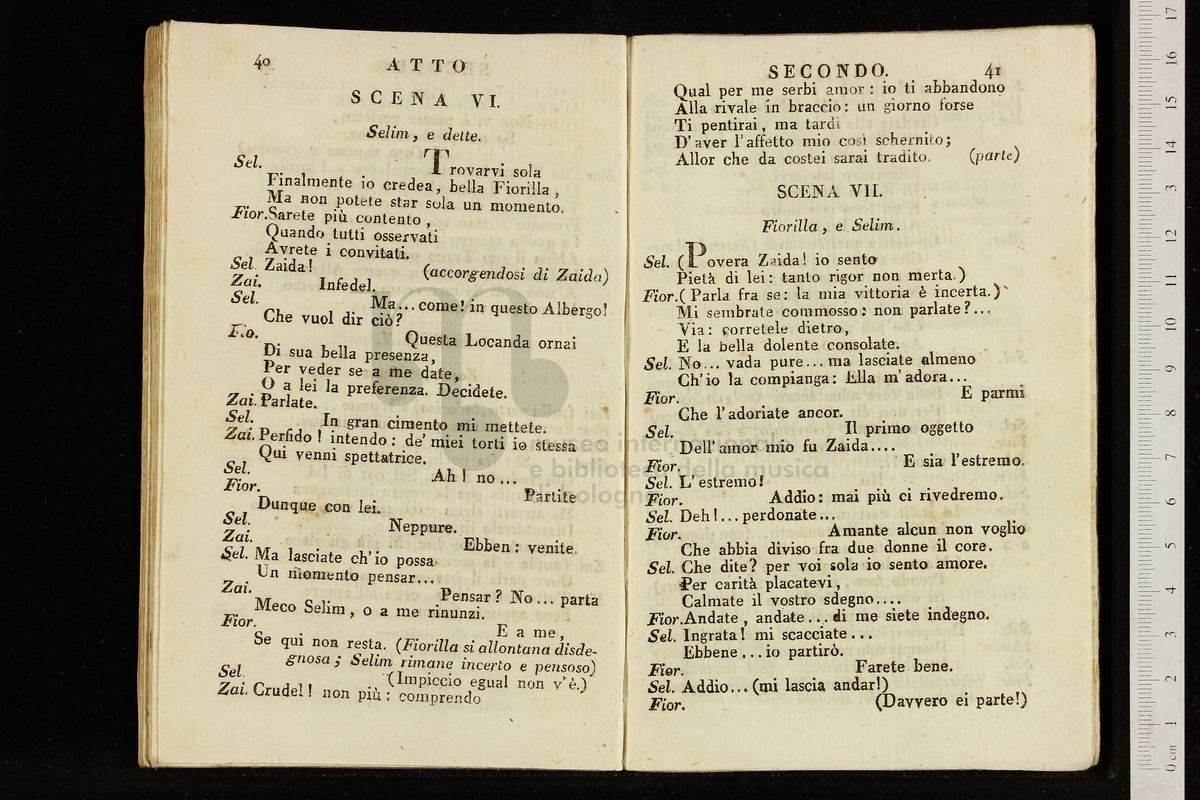 40
ATTO
SCENA VI.
Selim, e dette.
Sel. Trovarvi sola
Finalmente io credea, bella Fiorilla,
Ma non potete star sola un momento.
Fior. Sarete più contento,
Quando tutti osservati
Avrete i convitati.
Sel. Zaida! (accorgendosi di Zaida)
Zai. Infedel.
Sel. Ma... come! in questo Albergo!
Che vuol dir ciò?
Fio. Questa Locanda ornai
Di sua bella presenza,
Per veder se a me date,
O a lei la preferenza. Decidete.
Zai. Parlate.
Sel. In gran cimento mi mettete.
Zai. Perfido! intendo: de' miei torti io stessa
Qui venni spettatrice.
Sel. Ah! no...
Fior. Partite
Dunque con lei.
Sel. Neppure.
Zai. Ebben: venite.
Sel. Ma lasciate ch'io possa
Un momento pensar...
Zai. Pensar? No... parta
Meco Selim, o a me rinunzi.
Fior. E a me,
Se qui non resta. (Fiorilla si allontana disde-
gnosa; Selim rimane incerto e pensoso)
Sel (Impiccio egual non v'è.)
Zai. Crudel! non più: comprendo
SECONDO. 41
Qual per me serbi amor: io ti abbandono
Alla rivale in braccio: un giorno forse
Ti pentirai, ma tardi
D'aver l'affetto mio così schernito;
Allor che da costei sarai tradito. (parte)
SCENA VII.
Fiorilla, e Selim.
Sel. (Povera Zaida! io sento
Pietà di lei: tanto rigor non merta.)
Fior. (Parla fra se: la mia vittoria è incerta.)
Mi sembrate commosso: non parlate?...
Via: correte̶le dietro,
E la bella dolente consolate.
Sel. No... vada pure... ma lasciate almeno
Ch'io la compianga: Ella m'adora...
Fior. E parmi
Che l'adoriate ancor.
Sel. Il primo oggetto
Dell'amor mio fu Zaida....
Fior. E sia l'estremo.
Sel. L'estremo!
Fior. Addio: mai più ci rivedremo.
Sel. Deh!... perdonate...
Fior. Amante alcun non voglio
Che abbia diviso fra due donne il core.
Sel. Che dite? per voi sola io sento amore.
Per carità placatevi,
Calmate il vostro sdegno....
Fior. Andate, andate... di me siete indegno.
Sel. Ingrata! mi scacciate...
Ebbene... io partirò.
Fior. Farete bene.
Sel. Addio... (mi lascia andar!)
Fior. (Davvero ei parte!)
museo internazionale
e biblioteca della musica
di bologna
0 cm 1 2 3 4 5 6 7 8 9 10 11 12 13 14 15 16 17